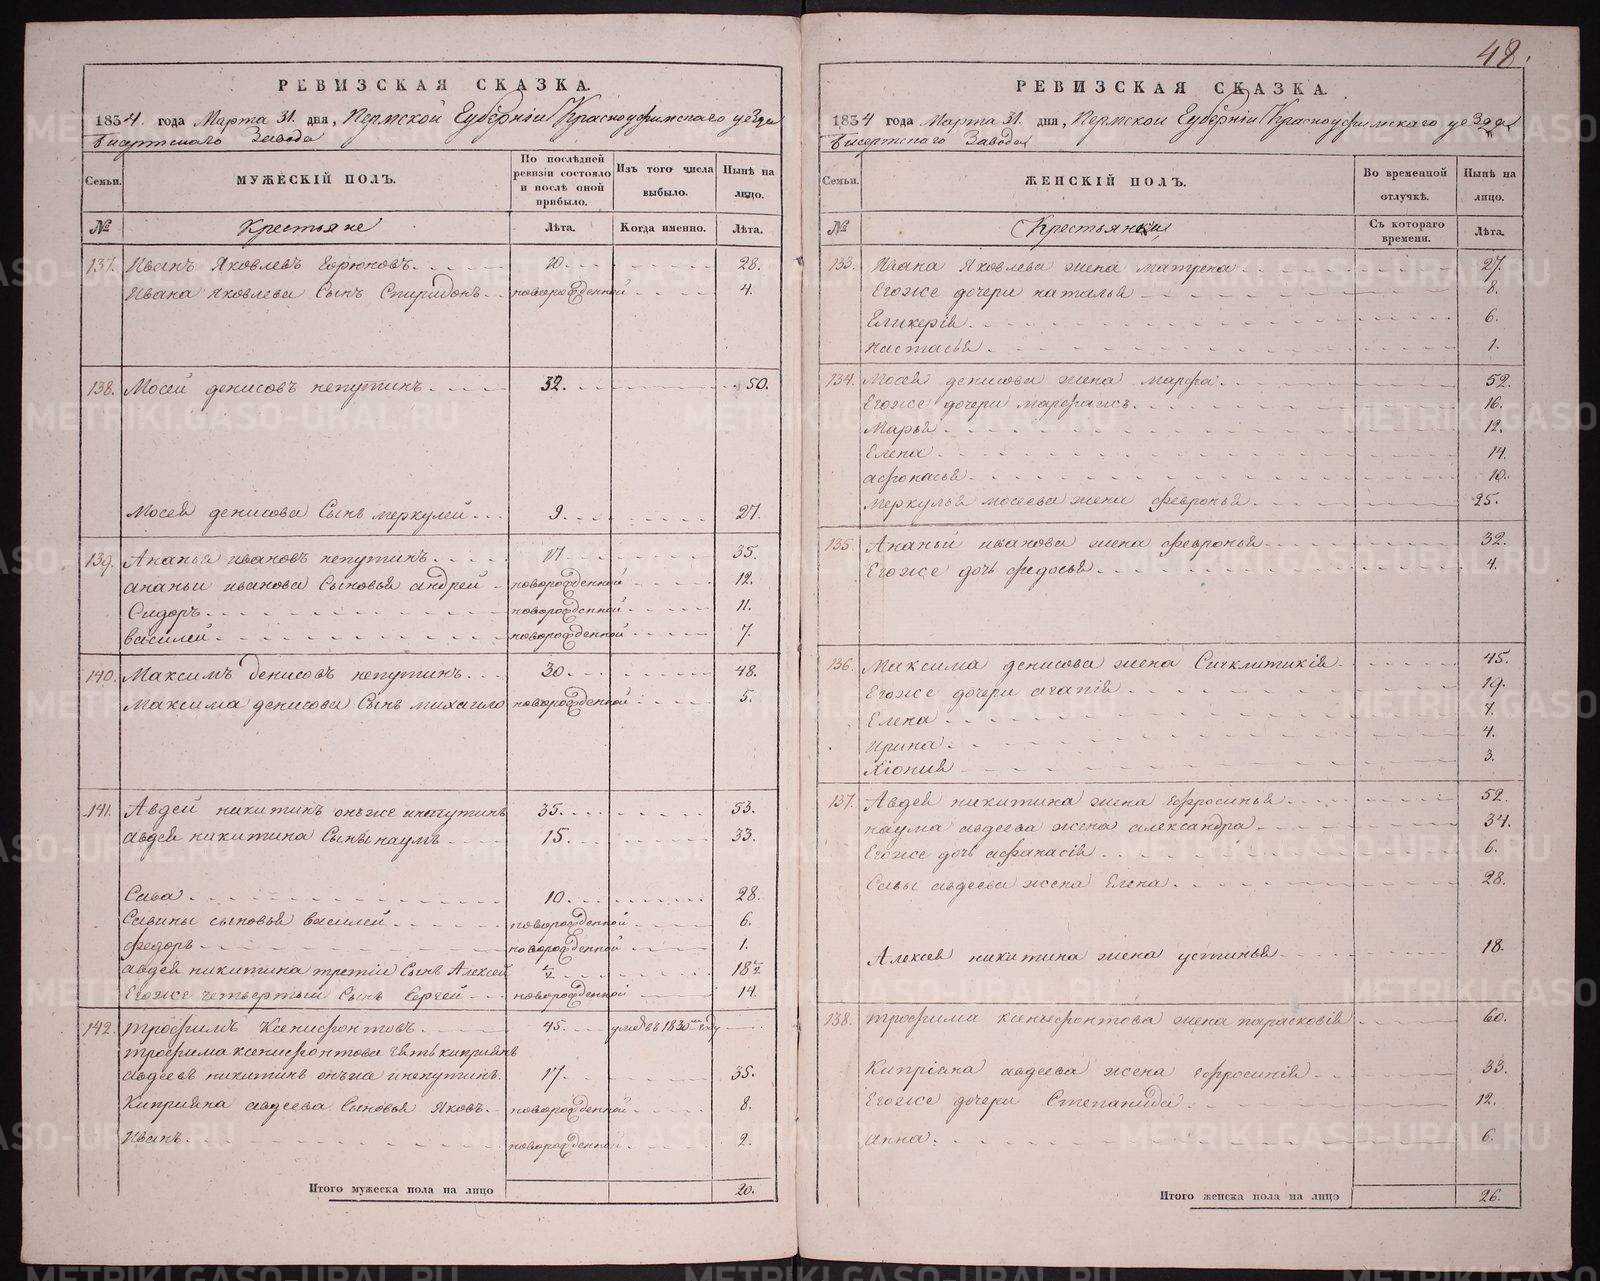 48.
РЕВИЗСКАЯ СКАЗКА.
1834. года Марта 31. дня, Пермской Губерніи Красноуфимскаго уезда
Бисертскаго Завода
Семьи.
МУЖЕСКІЙ ПОЛЪ.
По послѣдней ревизіи состояло и послѣ оной прибыло.
Изъ того числа выбыло.
Нынѣ на лицо.
№
Крестьяне
Лѣта.
Когда именно.
Лѣта.
137. Иванъ Яковлевъ 10. 28.
Ивана Яковлева Сынъ Спиридонъ новорожденной 4.
138. Мосей денисовъ непутинъ 32. 50.
Мосея денисова Сынъ меркулей 9. 27.
139. Ананья ивановъ непутинъ 17 35.
ананьи иванова Сыновья андрей новорожденной 12.
Сидоръ новорожденной 11.
василей новорожденной 7.
140. Максимъ денисовъ непутинъ 30. 48.
Максима денисова Сынъ михайло новорожденной 5.
141. Авдей никитинъ онъже 35. 53.
авдея никитина Сынъ наумъ 15. 33.
Сава 10. 28.
Савины сыновья василей новорожденной 6.
федоръ новорожденной 1.
авдея никитина третій Сынъ Алексей ½ 18½
Егоже четвертый Сынъ Сергей новорожденной 14.
142. трофимъ Ксенифонтовъ 45. умре въ 1830 году
трофима ксенифонтова зять киприянъ
авдеевъ никитинъ 17. 35.
Киприяна авдеева Сыновья Яковъ новорожденной 8.
Иванъ новорожденной 2.
Итого мужеска пола на лицо 20.
РЕВИЗСКАЯ СКАЗКА.
1834 года Марта 31. дня, Пермской Губерніи Красноуфимскаго уезда
Бисертскаго Завода
Семьи.
ЖЕНСКІЙ ПОЛЪ.
Во временной отлучкѣ.
Нынѣ на лицо.
№
Крестьянки
Съ котораго времени.
Лѣта.
133. Ивана Яковлева жена матрена 27.
Егоже дочери наталья 8.
Гликерія 6.
настасья 1.
134. Мосея денисова жена марфа 52.
Егоже дочери 16.
Марья 12.
Елена 14.
афонасья 10.
Меркулья мосеева жена февронья 25.
135. Ананьи иванова жена февронья 32.
Егоже дочь федосья 4.
136. Максима денисова жена Сичклитикія 45.
Егоже дочери агапія 19.
Елена 7.
Ирина 4.
Хіонія 3.
137. Авдея никитина жена Ефросинья 52.
наума авдеева жена александра 34.
Егоже дочь афанасія 6.
Савы авдеева жена Елена 28.
Алексея никитина жена устинья 18.
138. трофима ксенифонтова жена парасковія 60.
Кипріяна авдеева жена Ефросинія 33.
Егоже дочери Степанида 12.
анна 6.
Итого женска пола на лицо 26.
METRIKI.GASO-URAL.RU